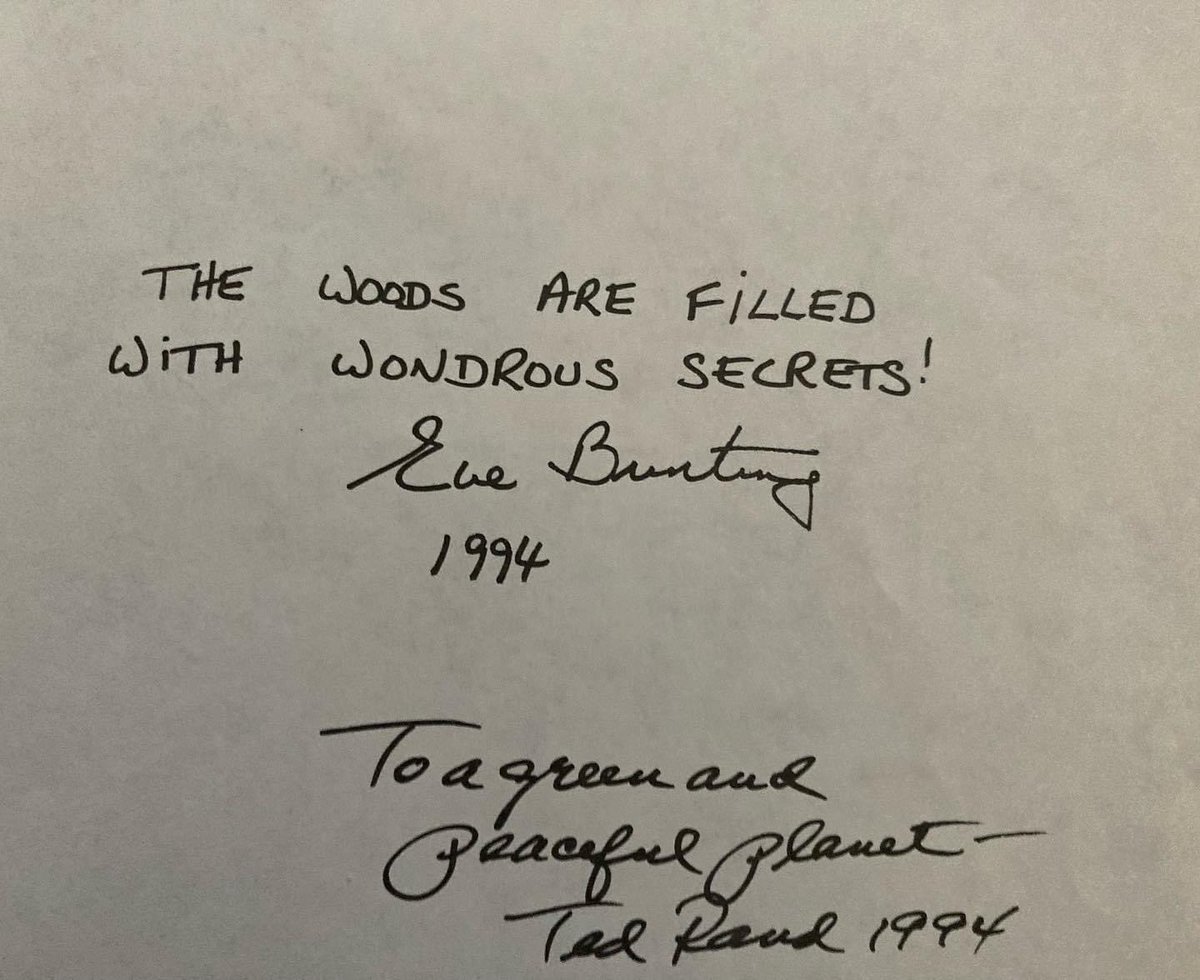 THE WOODS ARE FiLLED
WiTH WONDROUS SECRETS!
Eve Bunting
1994
To a green and
Peaceful Planet—
Ted Rand 1994